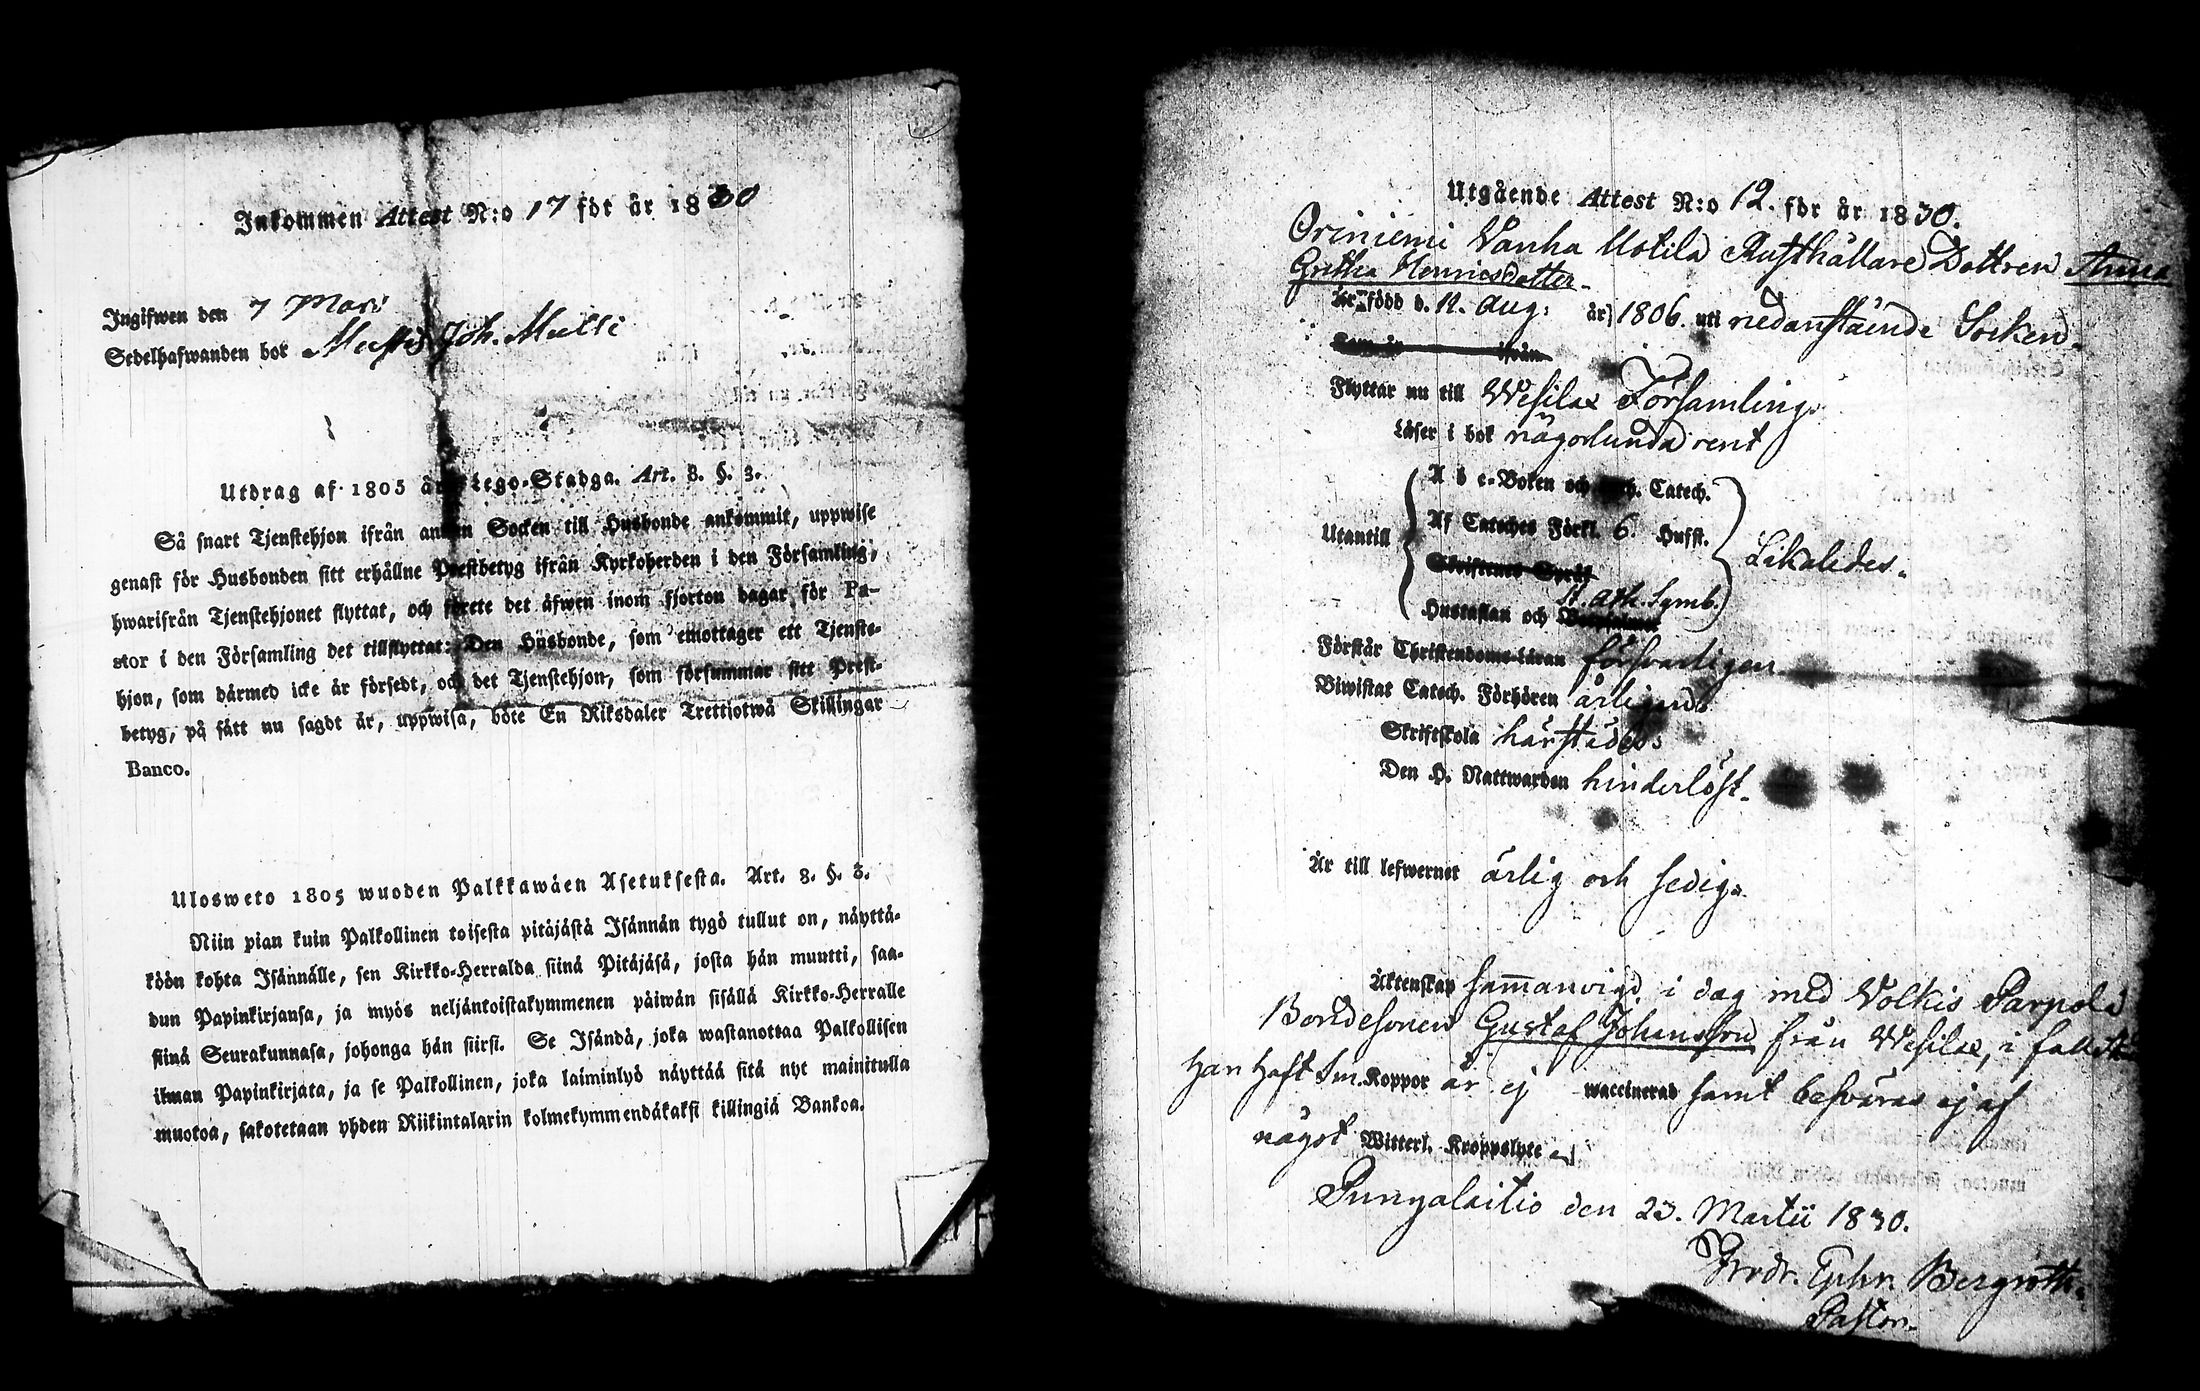 Inkommen Attest N:o 17 för år 1830
Ingifwen den 7 Mars
Sedelhafwanden bor Joh. Mulli
Utdrag af 1805 års Lego-Stadga. Art. 8. §. 3.
Så snart Tjenstehjon ifrån annan Socken till Husbonde ankommit, uppwise
genast för Husbonden sitt erhållne Prestbetyg ifrån Kyrkoherden i den Församling,
hwarifrån Tjenstehjonet flyttat, och förete det äfwen inom fjorton dagar för Pa-
stor i den Församling det tillflyttat: Den Husbonde, som emottager ett Tjenste-
hjon, som därmed icke är försedt, och det Tjenstehjon, som försummar sitt Prest-
betyg, på sätt nu sagdt är, uppwisa, böte En Riksdaler Trettiotwå Skillingar
Banco.
Ulosweto 1805 wuoden Palkkawäen Asetuksesta. Art. 8. §. 3.
Niin pian kuin Palkollinen toisesta pitäjästä Isännän tygö tullut on, näyttä-
köön kohta Isännälle, sen Kirkko-Herralda siinä Pitäjäsä, josta hän muutti, saa-
dun Papinkirjansa, ja myös neljäntoistakymmenen päiwän sisällä Kirkko-Herralle
siinä Seurakunnasa, johonga hän siirsi. Se Isändä, joka wastanottaa Palkollisen
ilman Papinkirjata, ja se Palkollinen, joka laiminlyö näyttää sitä nyt mainitulla
muotoa, sakotetaan yhden Riikintalarin kolmekymmendäkaksi killingiä Bankoa.
Utgående Attest N:o 12. för år 1830.
Oriniemi Vanha Uotila Rusthållare Dottren Anna
Gretha Henricsdotter
Är född d. 11. Aug: år 1806. uti nedanstående Socken.
Kom är ifrån
Flyttar nu till Wesilax Församling.
Läser i bok någorlunda rent
A b c-Boken och Catech.
Utantill Af Cateches Förkl. 6. Hufst. Likaledes.
Skriftenes Språk
St. Ath. Symb.
Hustaflan och
Förstår Christendoms-läran försvarligen
Biwistat Catech. Förhören årligen
Skriftskola härstädes
Den H. Nattwarden hinderlöst.
Är till lefwernet ärlig och sedig.
Äktenskap sammanvigd i dag med Volkis Parpola
Bondesonen Gustaf Johansson från Wesilax, i fall
Har haft Sm. Koppor är ej waccinerad samt besväras ej af
något Witterl. Kroppslyte
Pungalaitio den 23. Martii 1830.
Bergroth.
Pastor.